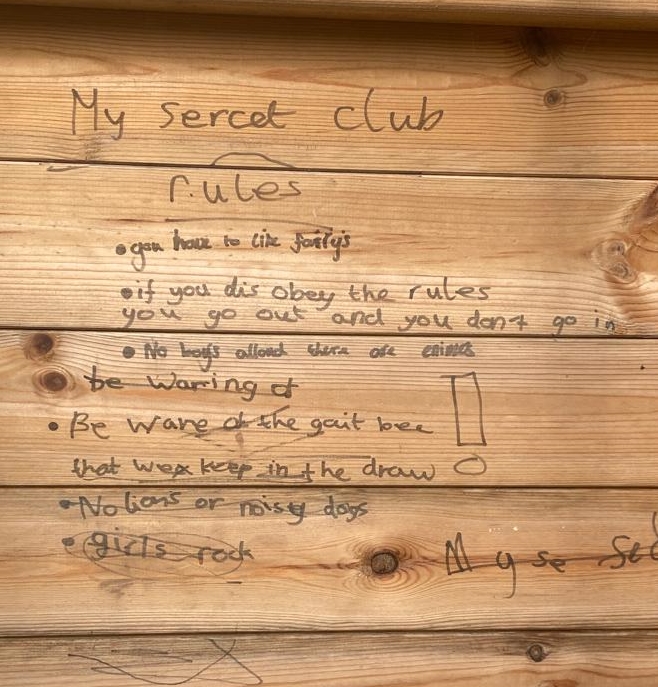 My sercet club
rules
• you have to like fairys
• if you dis obey the rules
you go out and you don't go in
• No boys allond there are enimes
be warring of
• Be ware of the gait bee
that we keep in the draw
• No lions or noisy dogs
• girls rock
My se